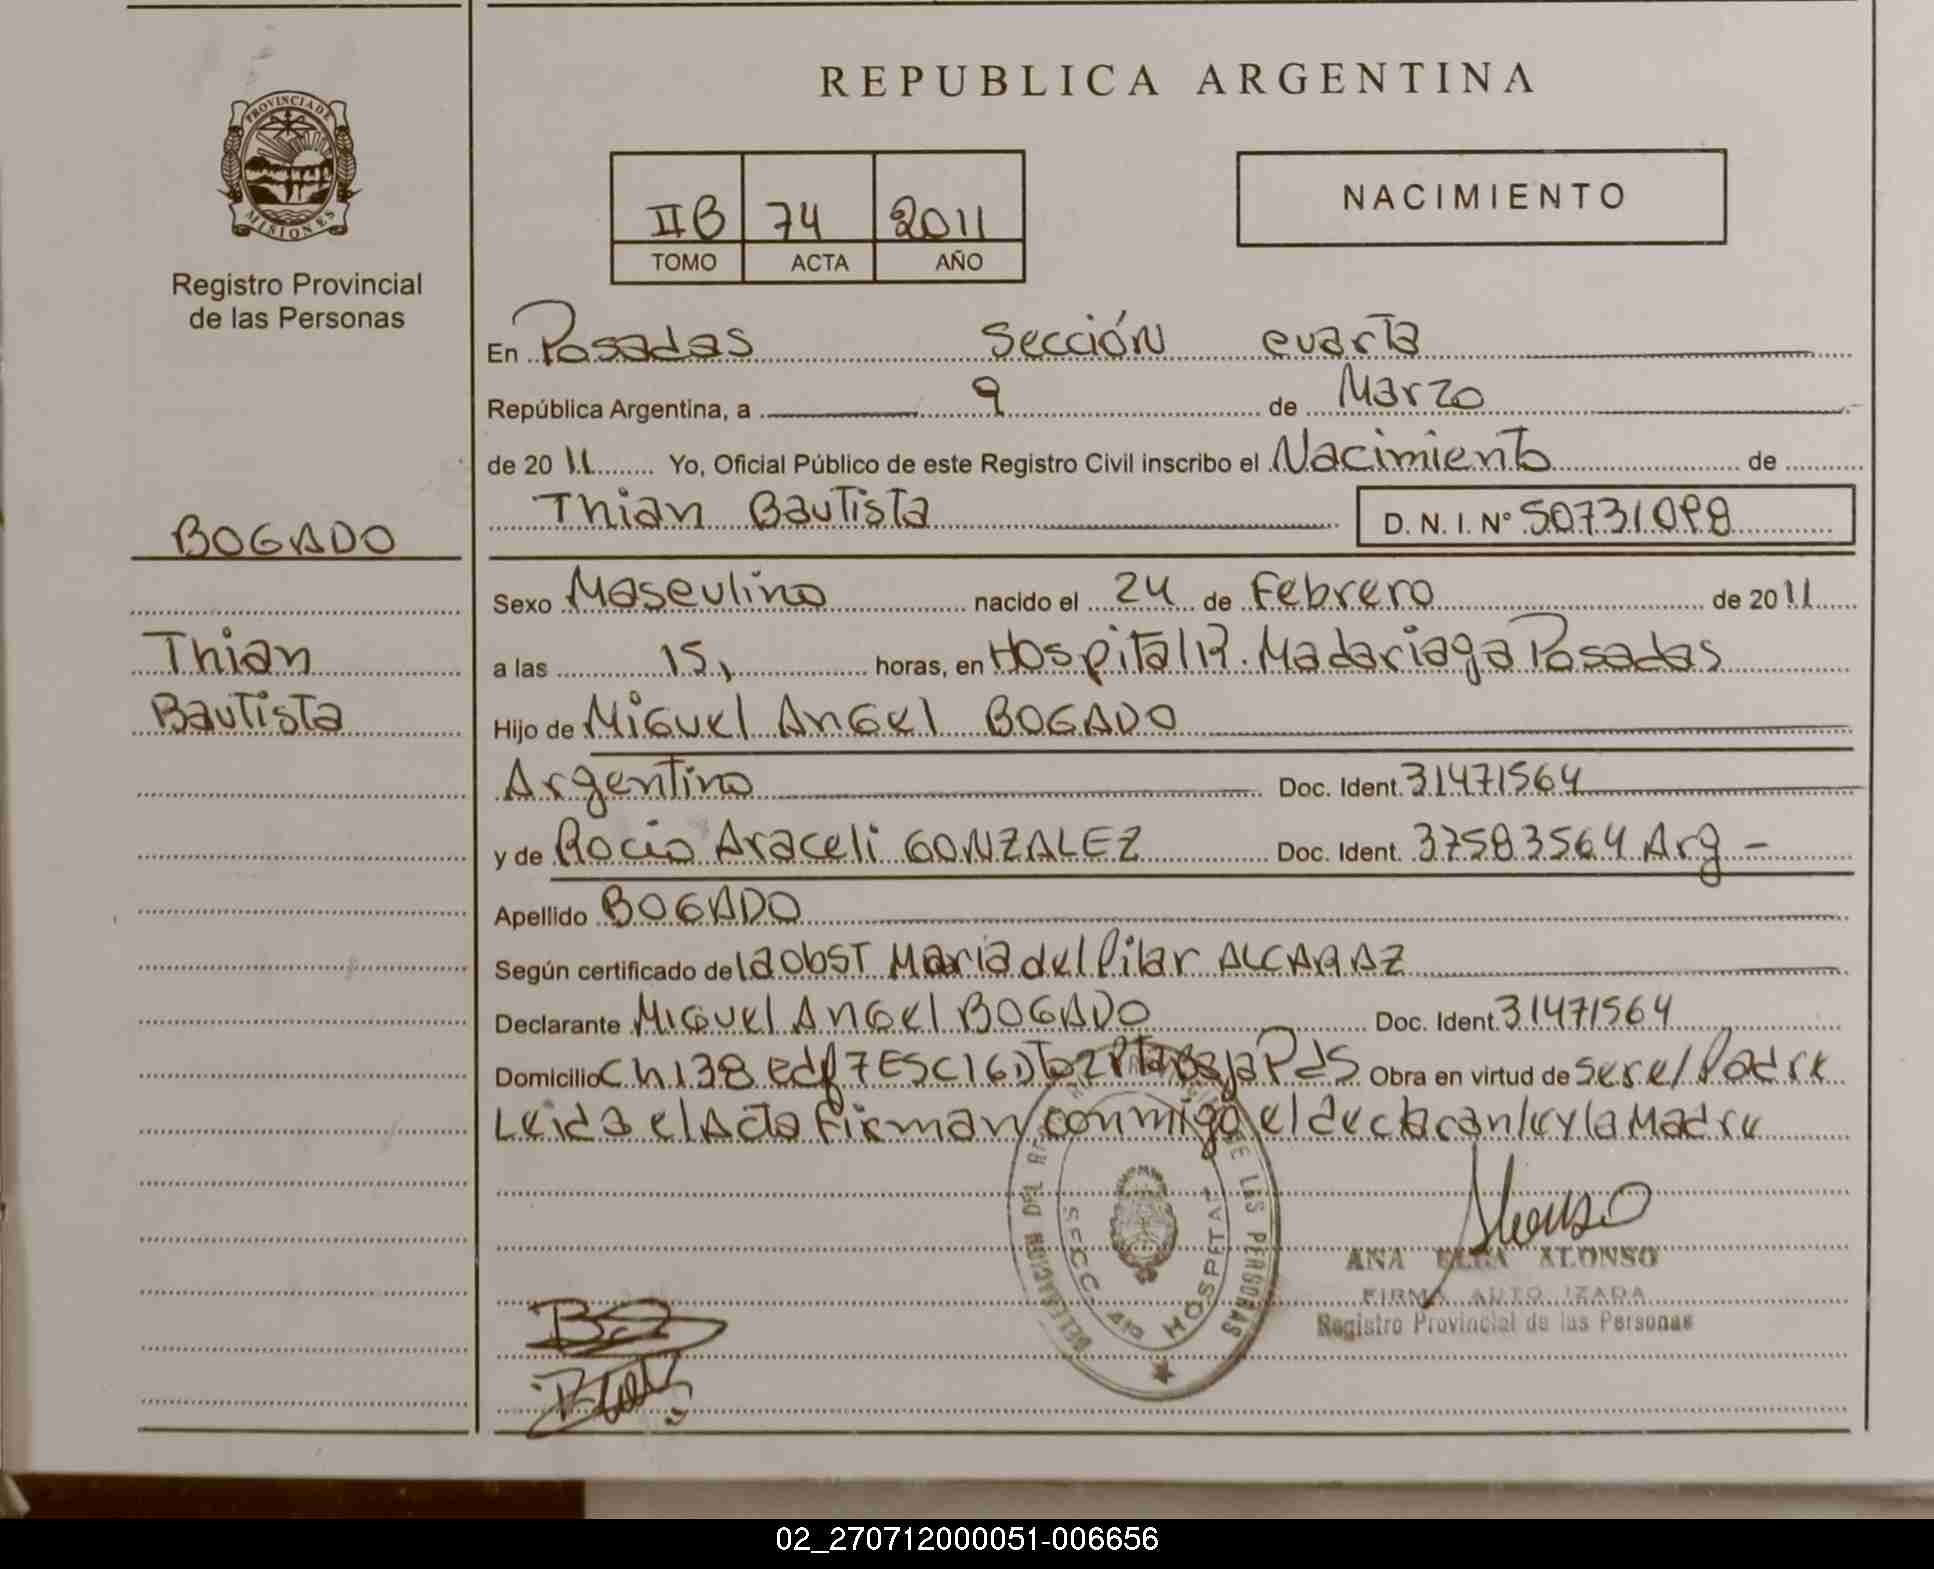 REPUBLICA ARGENTINA
PROVINCIA DE MISIONES
Registro Provincial
de las Personas
IIB 74 2011
TOMO ACTA AÑO
NACIMIENTO
En Posadas Sección cuarta
República Argentina, a 9 de Marzo
de 20 11 Yo, Oficial Público de este Registro Civil inscribo el Nacimiento de
Thian Bautista D. N. I. N° 50731098
BOGADO
Thian
Bautista
Sexo Masculino nacido el 24 de Febrero de 20 11
a las 15, horas, en Hospital R. Madariaga Posadas
Hijo de Miguel Angel BOGADO
Argentino Doc. Ident. 31471564
y de Rocio Araceli GONZALEZ Doc. Ident. 37583564 Arg -
Apellido BOGADO
Según certificado de la obst Maria del Pilar ALCARAZ
Declarante Miguel Angel BOGADO Doc. Ident. 31471564
Domicilio Ch 138 edf 7 ESC 16 Dto 2 Pta Baja Pds Obra en virtud de ser el Padre
Leida el Acta firman conmigo el declarante y la Madre
DELEGACION DEL DE LAS PERSONAS
SECC. 4ta HOSPITAL
Alonso
ANA ELBA ALONSO
FIRMA AUTORIZADA
Registro Provincial de las Personas
02_270712000051-006656